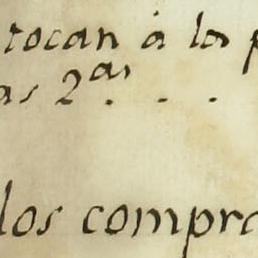 tocan à la p
as 2.as . .
los compra